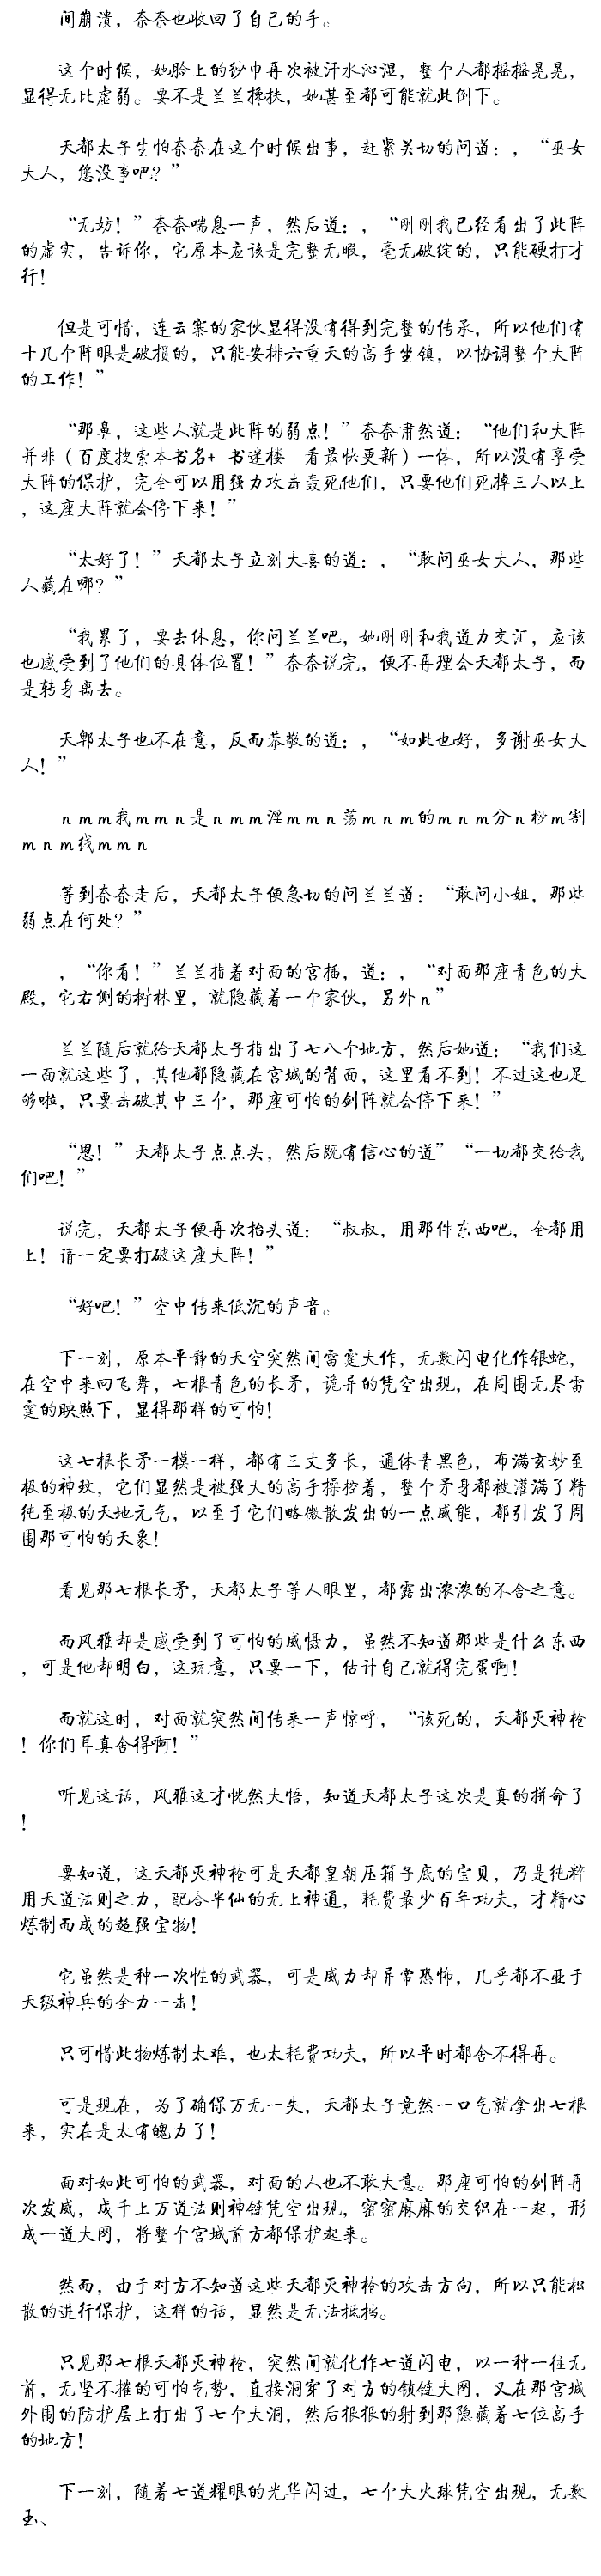 间崩溃，奈奈也收回了自己的手。
这个时候，她脸上的纱巾再次被汗水沁湿，整个人都摇摇晃晃，
显得无比虚弱。要不是兰兰搀扶，她甚至都可能就此倒下。
天都太子生怕奈奈在这个时候出事，赶紧关切的问道：，“巫女
大人，您没事吧？”
“无妨！”奈奈喘息一声，然后道：，“刚刚我已经看出了此阵
的虚实，告诉你，它原本应该是完整无暇，毫无破绽的，只能硬打才
行！
但是可惜，连云寨的家伙显得没有得到完整的传承，所以他们有
十几个阵眼是破损的，只能安排六重天的高手坐镇，以协调整个大阵
的工作！”
“那鼻，这些人就是此阵的弱点！”奈奈肃然道：“他们和大阵
并非（百度搜索本书名+ 书迷楼 看最快更新）一体，所以没有享受
大阵的保护，完全可以用强力攻击轰死他们，只要他们死掉三人以上
，这座大阵就会停下来！”
“太好了！”天都太子立刻大喜的道：，“敢问巫女大人，那些
人藏在哪？”
“我累了，要去休息，你问兰兰吧，她刚刚和我道力交汇，应该
也感受到了他们的具体位置！”奈奈说完，便不再理会天都太子，而
是转身离去。
天郫太子也不在意，反而恭敬的道：，“如此也好，多谢巫女大
人！”
ｎｍｍ我ｍｍｎ是ｎｍｍ淫ｍｍｎ荡ｍｎｍ的ｍｎｍ分ｎ桫ｍ割
ｍｎｍ线ｍｍｎ
等到奈奈走后，天都太子便急切的问兰兰道：“敢问小姐，那些
弱点在何处？”
，“你看！”兰兰指着对面的宫插，道：，“对面那座青色的大
殿，它右侧的树林里，就隐藏着一个家伙，另外ｎ”
兰兰随后就给天都太子指出了七八个地方，然后她道：“我们这
一面就这些了，其他都隐藏在宫城的背面，这里看不到！不过这也足
够啦，只要击破其中三个，那座可怕的剑阵就会停下来！”
“恩！”天都太子点点头，然后既有信心的道”“一切都交给我
们吧！”
说完，天都太子便再次抬头道：“叔叔，用那件东西吧，全都用
上！请一定要打破这座大阵！”
“好吧！”空中传来低沉的声音。
下一刻，原本平静的天空突然间雷霆大作，无数闪电化作银蛇，
在空中来回飞舞，七根青色的长矛，诡异的凭空出现，在周围无尽雷
霆的映照下，显得那样的可怕！
这七根长矛一模一样，都有三丈多长，通体青黑色，布满玄妙至
极的神玟，它们显然是被强大的高手操控着，整个矛身都被灌满了精
纯至极的天地元气，以至于它们略微散发出的一点威能，都引发了周
围那可怕的天象！
看见那七根长矛，天都太子等人眼里，都露出浓浓的不舍之意。
而风雅却是感受到了可怕的威慑力，虽然不知道那些是什么东西
，可是他却明白，这玩意，只要一下，估计自己就得完蛋啊！
而就这时，对面就突然间传来一声惊呼，“该死的，天都灭神枪
！你们耳真舍得啊！”
听见这话，风雅这才恍然大悟，知道天都太子这次是真的拼命了
！
要知道，这天都灭神枪可是天都皇朝压箱子底的宝贝，乃是纯粹
用天道法则之力，配合半仙的无上神通，耗费最少百年功夫，才精心
炼制而成的超强宝物！
它虽然是种一次性的武器，可是威力却异常恐怖，几乎都不亚于
天级神兵的全力一击！
只可惜此物炼制太难，也太耗费功夫，所以平时都舍不得再。
可是现在，为了确保万无一失，天都太子竟然一口气就拿出七根
来，实在是太有魄力了！
面对如此可怕的武器，对面的人也不敢大意。那座可怕的剑阵再
次发威，成千上万道法则神链凭空出现，密密麻麻的交织在一起，形
成一道大网，将整个宫城前方都保护起来。
然而，由于对方不知道这些天都灭神枪的攻击方向，所以只能松
散的进行保护，这样的话，显然是无法抵挡。
只见那七根天都灭神枪，突然间就化作七道闪电，以一种一往无
前，无坚不摧的可怕气势，直接洞穿了对方的锁链大网，又在那宫城
外围的防护层上打出了七个大洞，然后狠狠的射到那隐藏着七位高手
的地方！
下一刻，随着七道耀眼的光华闪过，七个大火球凭空出现，无数
玉、